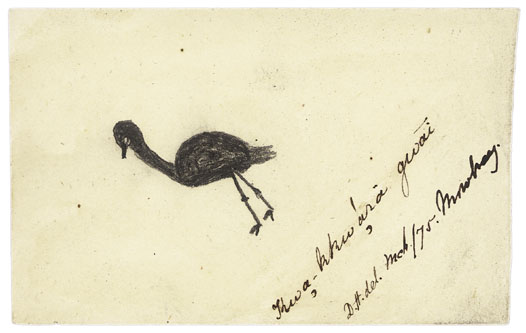 Kwạ-kkwạ̄rā gwāi
D.H. del. Mch./75. Mowbray.